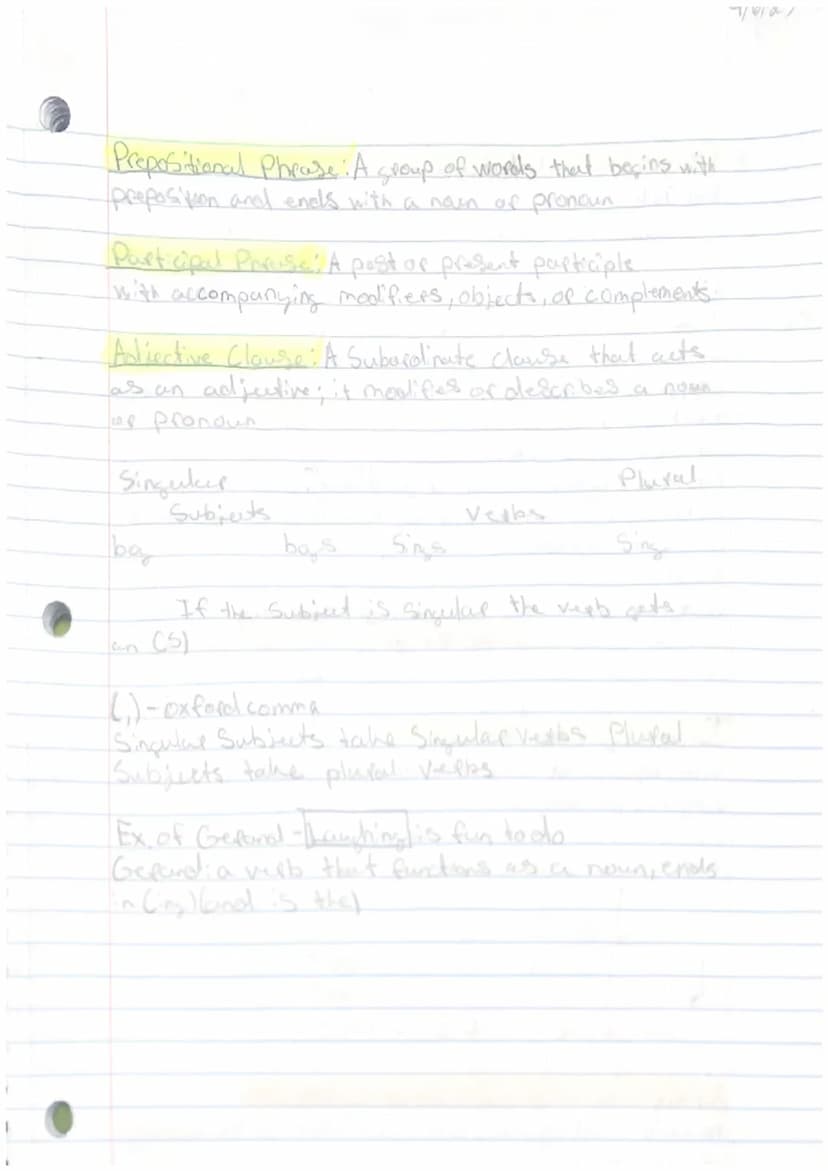 Prepositional Phrase: A group of words that begins with
preposition and ends with a noun or pronoun
Participal Phrase: A past or present participle
with accompanying modifiers, objects, or complements
Adjective Clause: A Subordinate clause that acts
as an adjective; it modifies or describes a noun
or pronoun
Singular Plural
Subjects Verbs
boy boys Sings Sing
If the Subject is Singular the verb gets
an (S)
(,) - oxford comma
Singular Subjects take Singular verbs Plural
Subjects take plural verbs
Ex. of Gerund - Laughing is fun to do
Gerund: a verb that functions as a noun, ends
in (ing) (and is the)